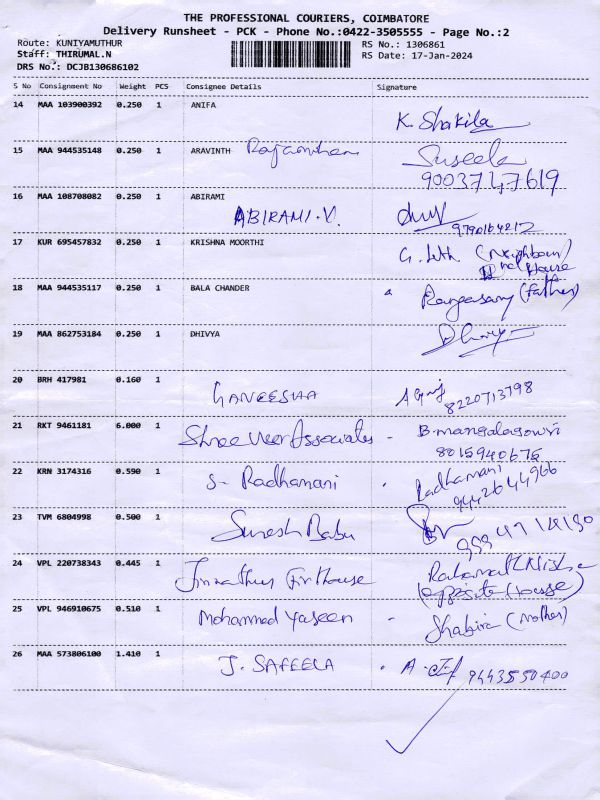 THE PROFESSIONAL COURIERS, COIMBATORE
Delivery Runsheet - PCK - Phone No.:0422-3505555 - Page No.:2
Route: KUNIYAMUTHUR
RS No.: 1306861
Staff: THIRUMAL.N
RS Date: 17-Jan-2024
DRS No.: DCJB130686102
S No Consignment No Weight PCS Consignee Details Signature
14 MAA 103900392 0.250 1 ANIFA
K. Shakila
15 MAA 944535148 0.250 1 ARAVINTH
Suseela
9003747619
16 MAA 108708082 0.250 1 ABIRAMI
ABIRAMI.V.
17 KUR 695457832 0.250 1 KRISHNA MOORTHI
G. (Neighbour
House
18 MAA 944535117 0.250 1 BALA CHANDER
Rangasamy (Father)
19 MAA 862753184 0.250 1 DHIVYA
Dhivya
20 BRH 417981 0.160 1
GANEESHA
8220713798
21 RKT 9461181 6.000 1 Shree Veer Associates - B. mangalagowri
8015940675
22 KRN 3174316 0.590 1 S- Radhamani Radhamani
9442644966
23 TVM 6804998 0.500 1
Suresh Babu
24 VPL 220738343 0.445 1
Jinnathus Firthouse Rahamath Nisha
(opposite House)
25 VPL 946910675 0.510 1
Mohammed Yaseen - Shabira (Mother)
26 MAA 573806100 1.410 1
J. SAFEELA A. 9443550400